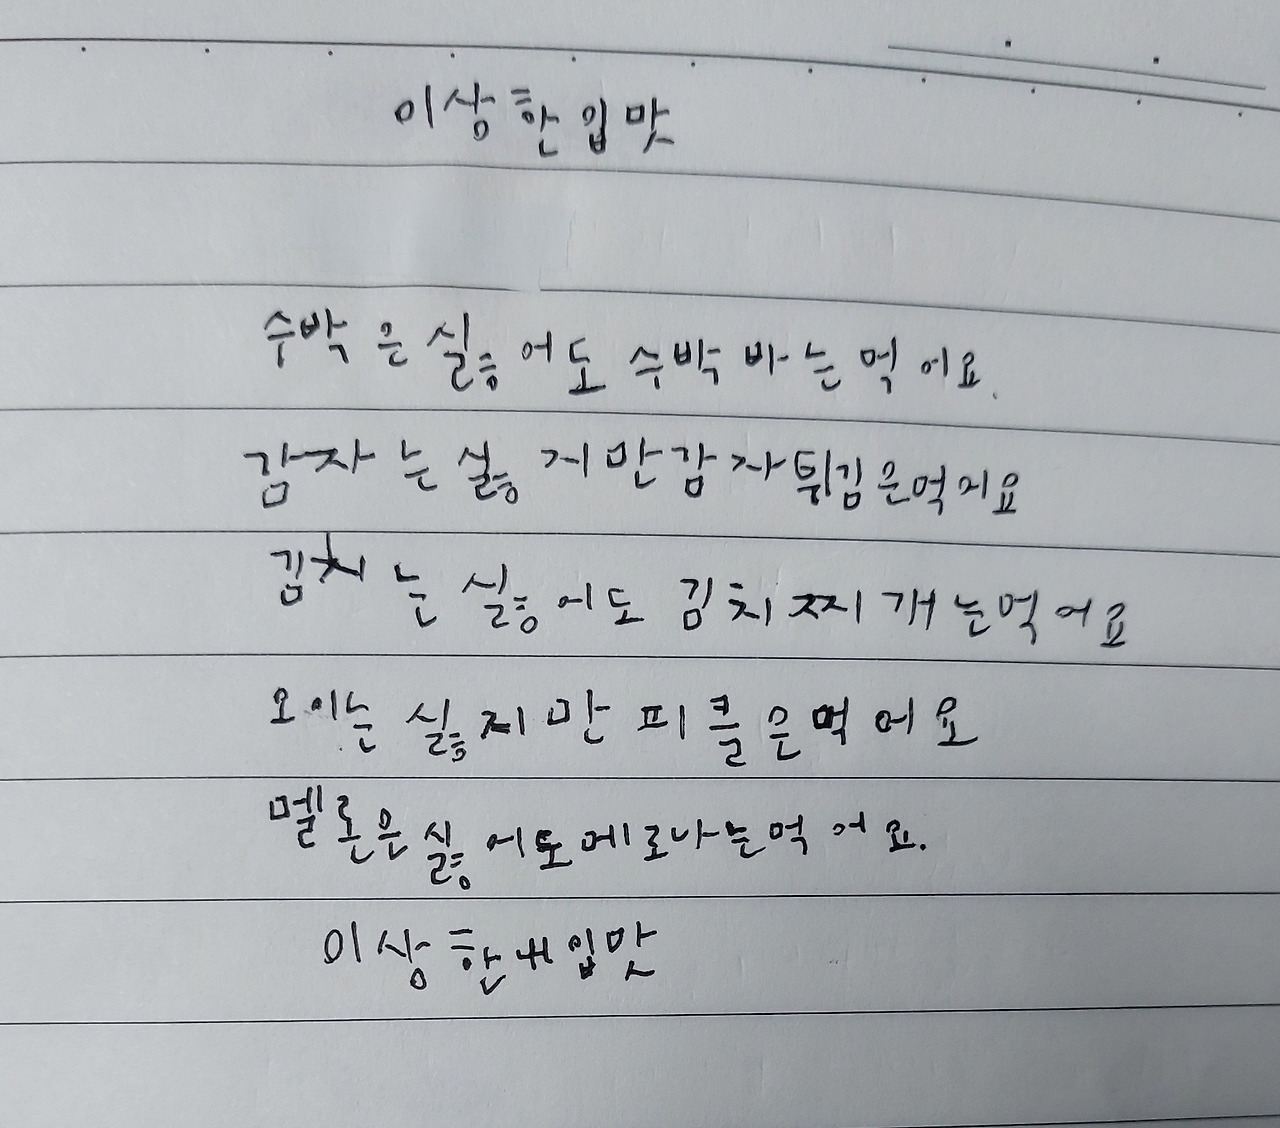 이상한 입맛
수박은 싫어도 수박바는 먹어요.
감자는 싫지만 감자튀김은 먹지요
김치는 싫어도 김치찌개는 먹어요
오이는 싫지만 피클은 먹어요
멜론은 싫어도 메로나는 먹어요.
이상한 내 입맛